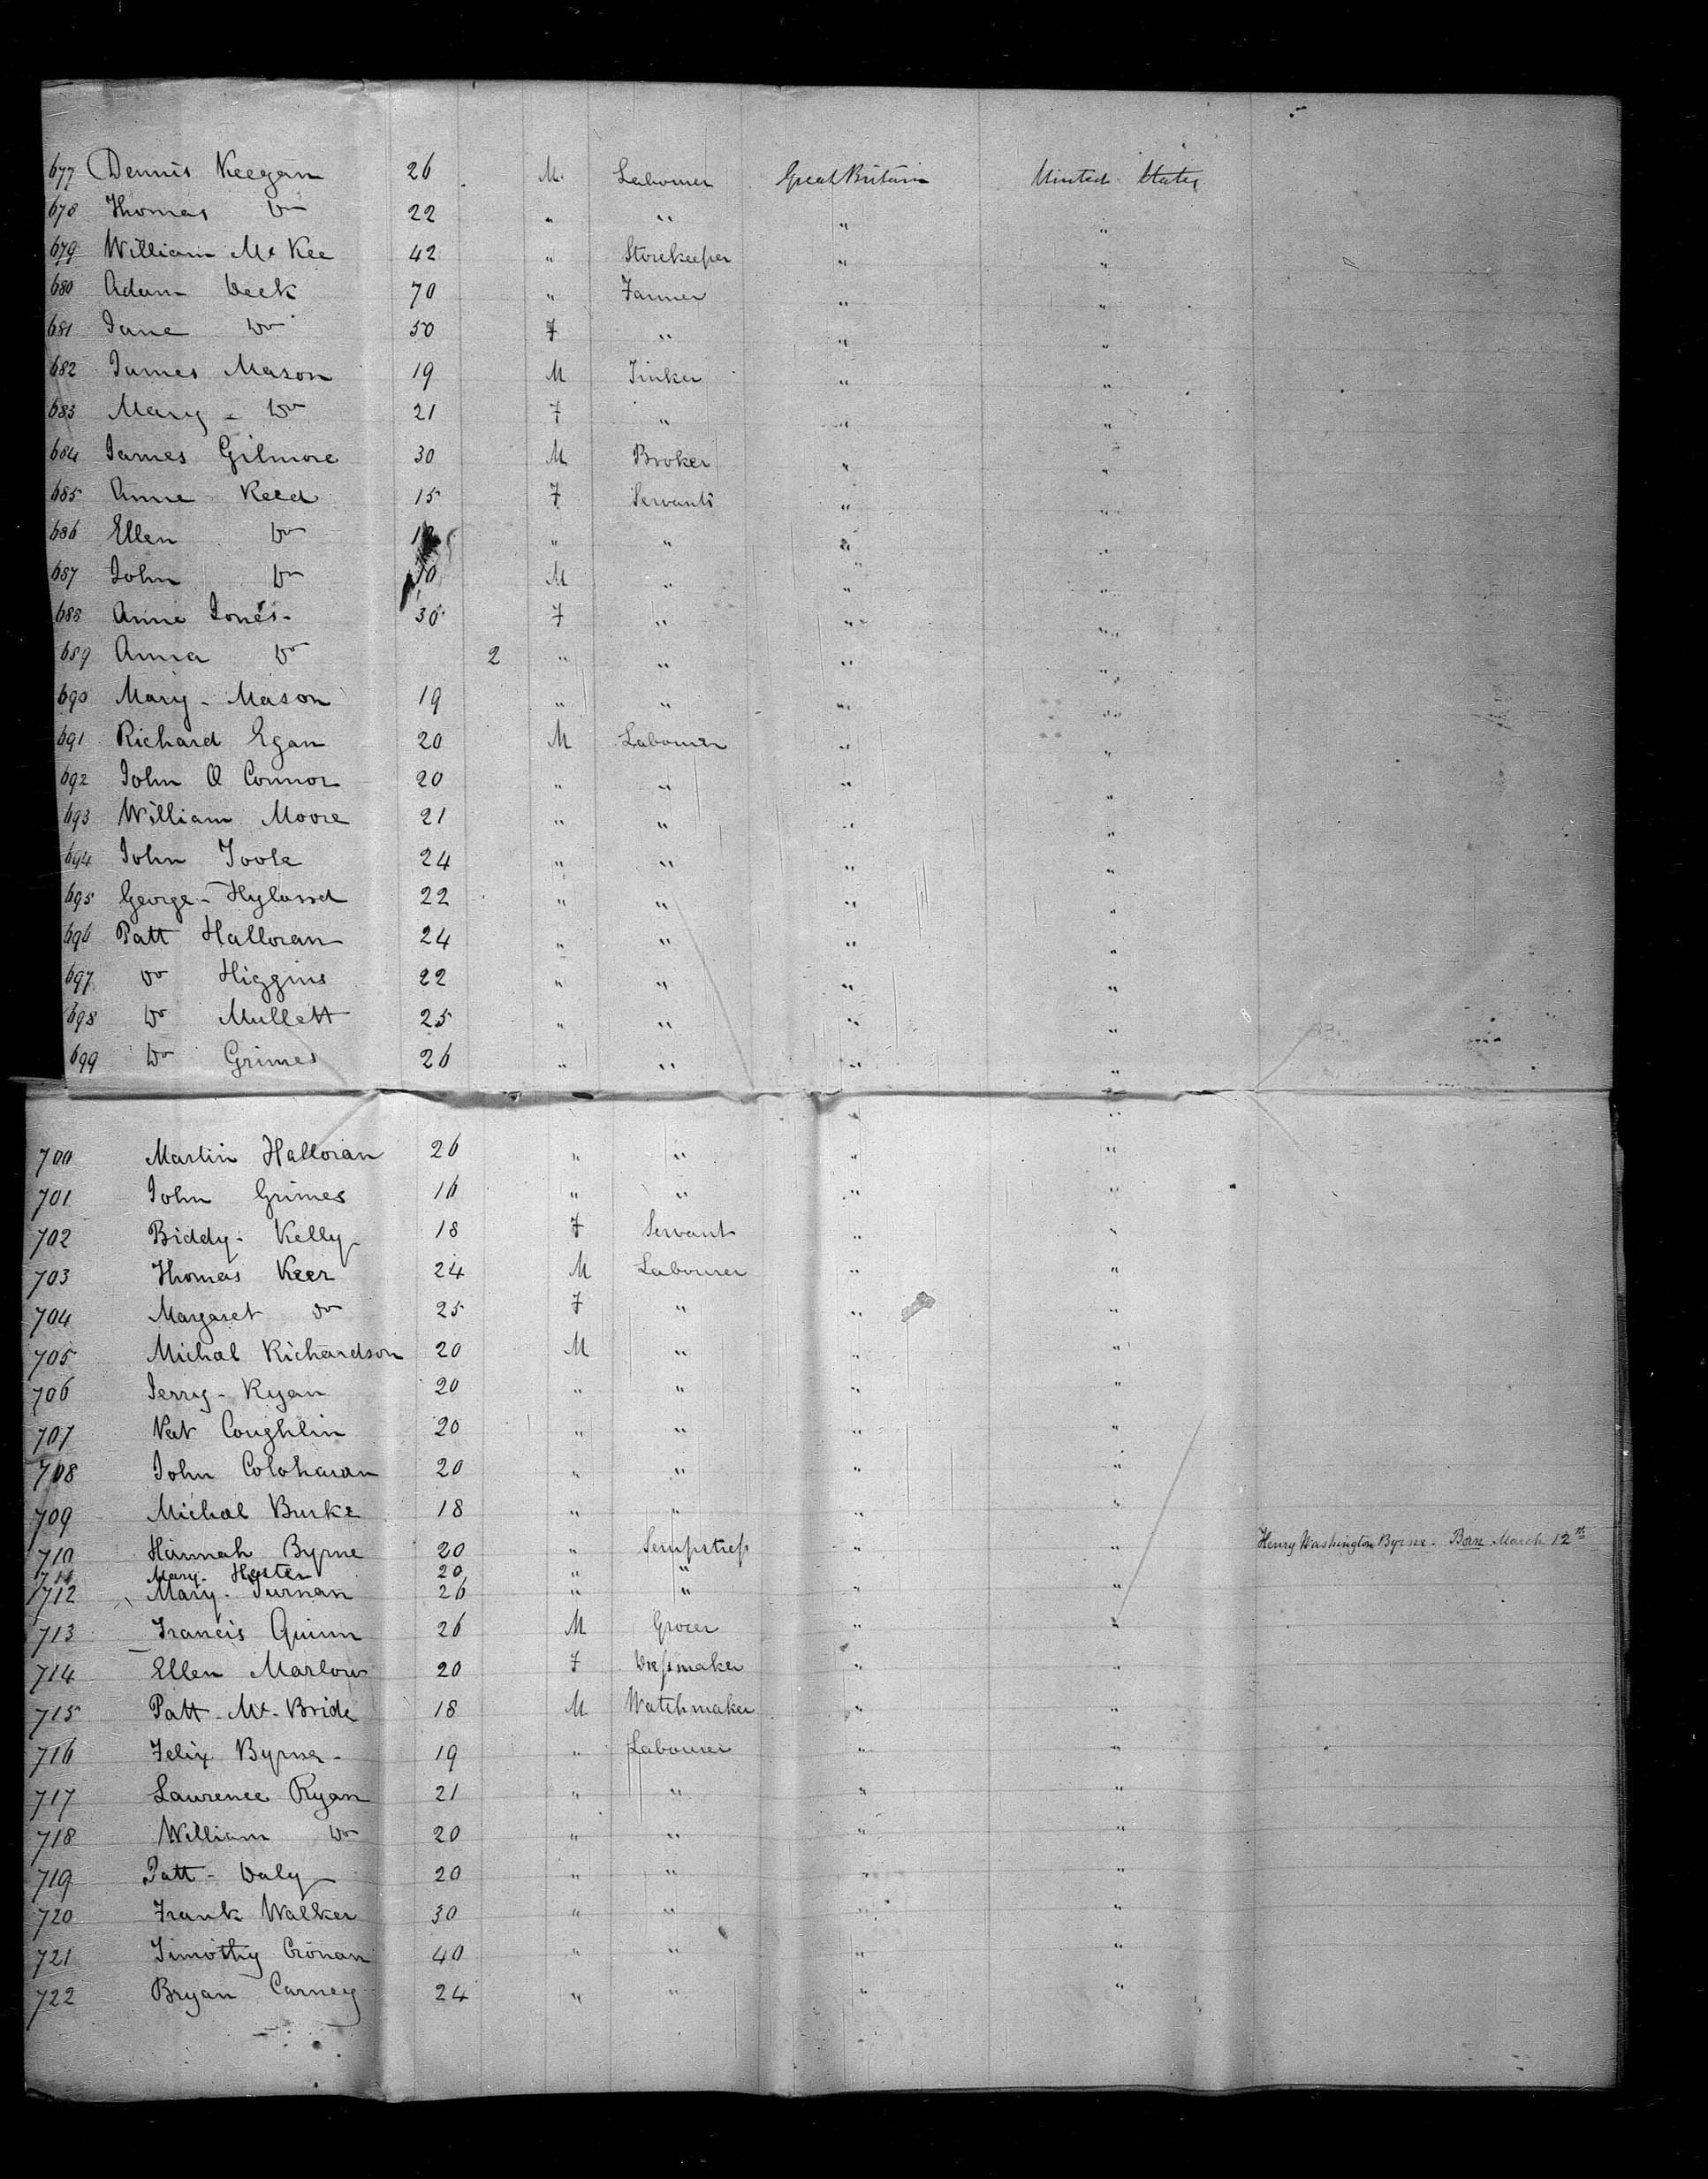 677 Dennis Keegan 26 M. Labourer Great Britain United States
678 Thomas Do 22 " " " "
679 William Mc Kee 42 " Storekeeper " "
680 Adam Deek 70 " Farmer " "
681 Jane Do 50 F " " "
682 James Mason 19 M Tinker " "
683 Mary - Do 21 F " " "
684 James Gilmore 30 M Broker " "
685 Anne Reed 15 F Servants " "
686 Ellen Do " " " "
687 John Do 10 M " " "
688 Anne Jones - 30 F " " "
689 Anna Do 2 " " " "
690 Mary - Mason 19 " " " "
691 Richard Egan 20 M Labourer " "
692 John O Connor 20 " " " "
693 William Moore 21 " " " "
694 John Toole 24 " " " "
695 George - Hyland 22 " " " "
696 Patt Halloran 24 " " " "
697 Do Higgins 22 " " " "
698 Do Mullett 25 " " " "
699 Do Grimes 26 " " " "
700 Martin Halloran 26 " " " "
701 John Grimes 16 " " " "
702 Biddy - Kelly 18 F Servant " "
703 Thomas Keer 24 M Labourer " "
704 Margaret Do 25 F " " "
705 Michal Richardson 20 M " " "
706 Jerry - Ryan 20 " " " "
707 Nat Coughlin 20 " " " "
708 John Coloharan 20 " " " "
709 Michal Burke 18 " " " "
710 Hannah Byrne 20 " Sempstress " " Henry Washington Byrne - Born March 12th
711 Mary - Hester 20 " "
712 Mary - Turnan 26 " " " "
713 Francis Quinn 26 M Grocer " "
714 Ellen Marlow 20 F Dressmaker " "
715 Patt - Mc - Bride 18 M Watchmaker " "
716 Felix Byrne - 19 " Labourer " "
717 Laurence Ryan 21 " " " "
718 William Do 20 " " " "
719 Patt - Daly 20 " " " "
720 Frank Walker 30 " " " "
721 Timothy Cronan 40 " " " "
722 Bryan Carney 24 " " " "